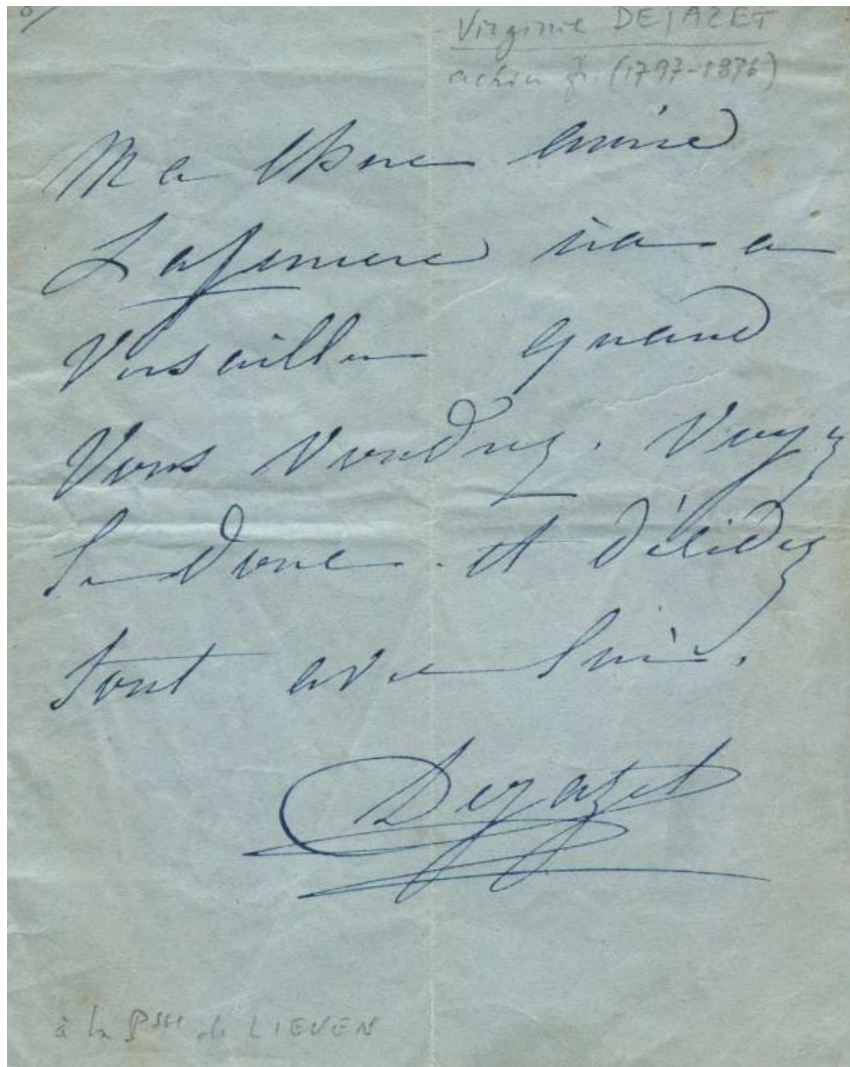 Virginie DEJAZET
actrice fr. (1797-1876)
Ma chere amie
Lafemiere ira a
Versailles quand
Vous voudrez. Voyez
le donc et décidez
tout avec lui.
Dejazet
à la Psse de LIEVEN